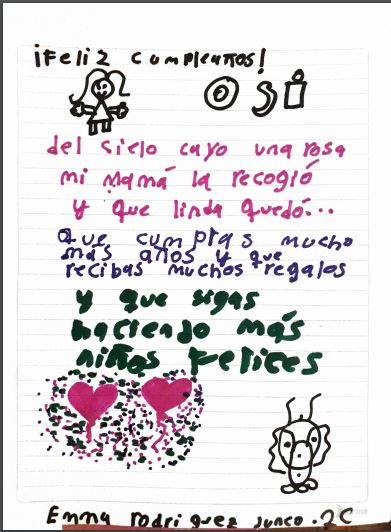 ¡Feliz cumpleaños!
del cielo cayo una rosa
mi mamá la recogió
y que linda quedó...
que cumplas mucho
más años y que
recibas muchos regalos
y que sigas
haciendo más
niños felices
Emma rodriguez junco. 2C